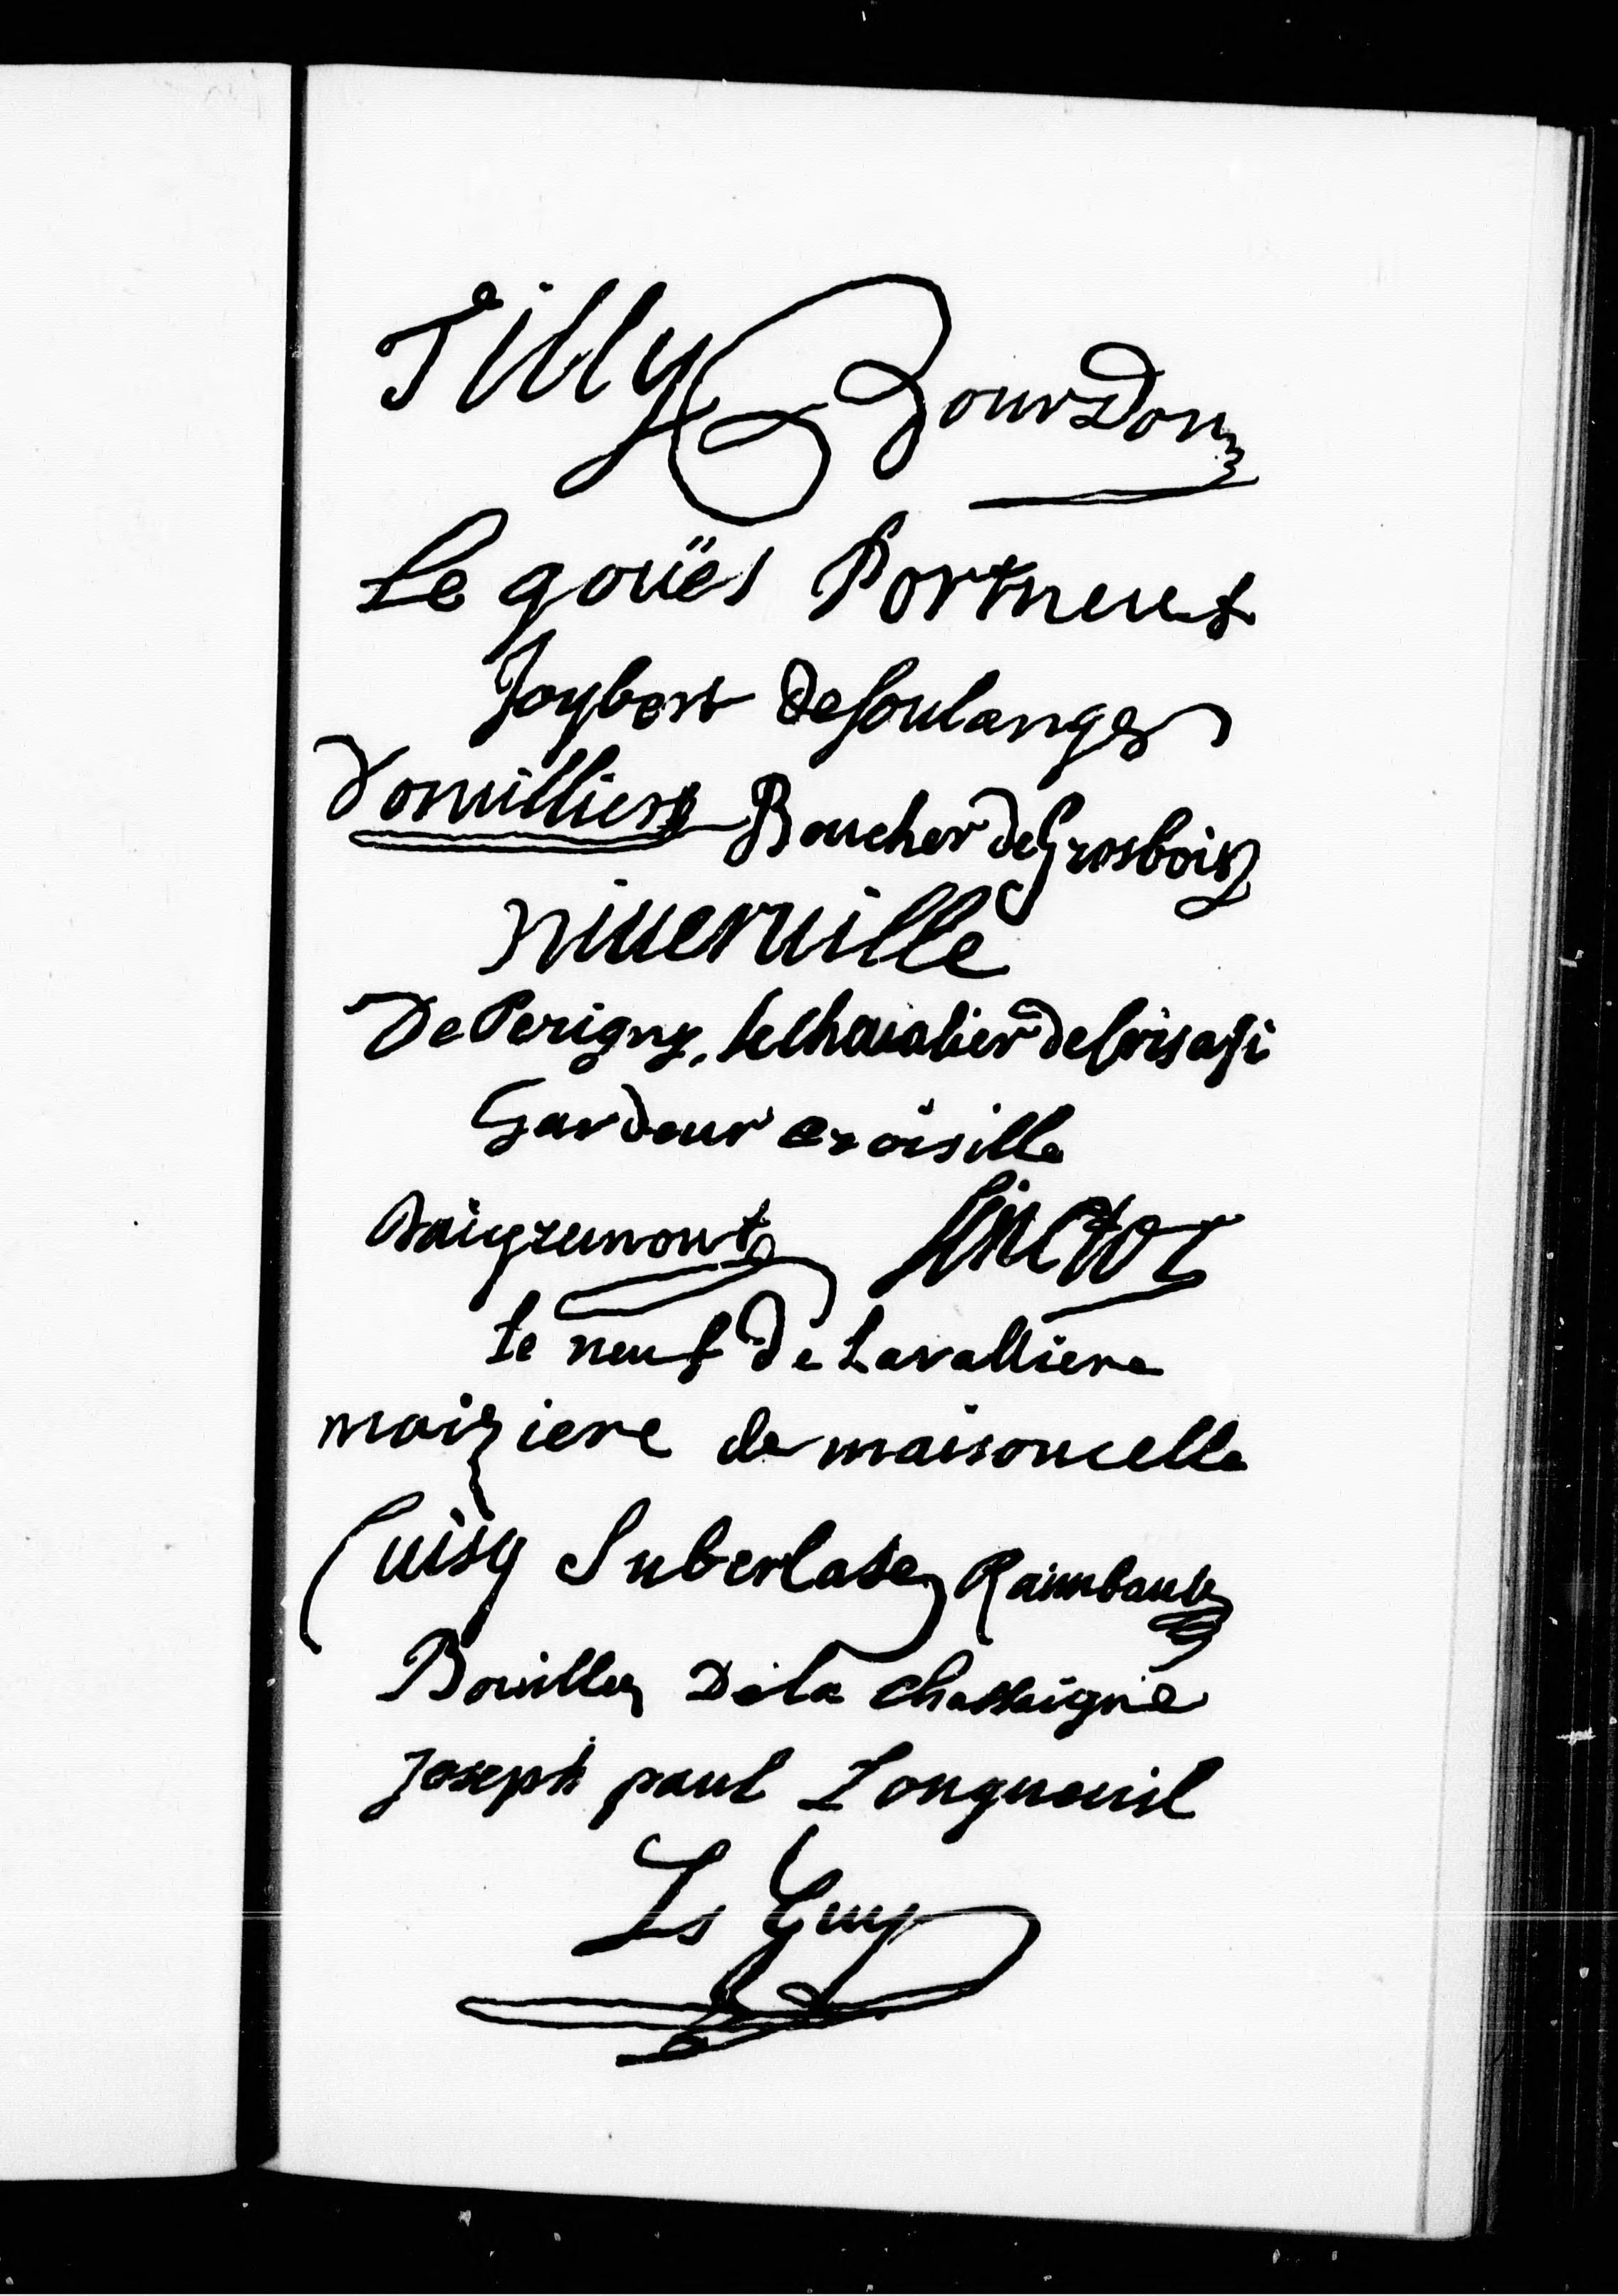 Tilly Bourdon
Le goües Portneuf
Joybert de soulanges
Dorvilliers Boucher de Grosbois
niverville
De Perigny, le Chevalier de Crisasi
Gardeur croisille
Daigremont Sinctor
Le neuf De Lavalliere
maiziere de maisoncelle
Cuisy Subercase Raimbault
Bouillet De la chassaigne
Joseph paul Longueuil
Ls Guy